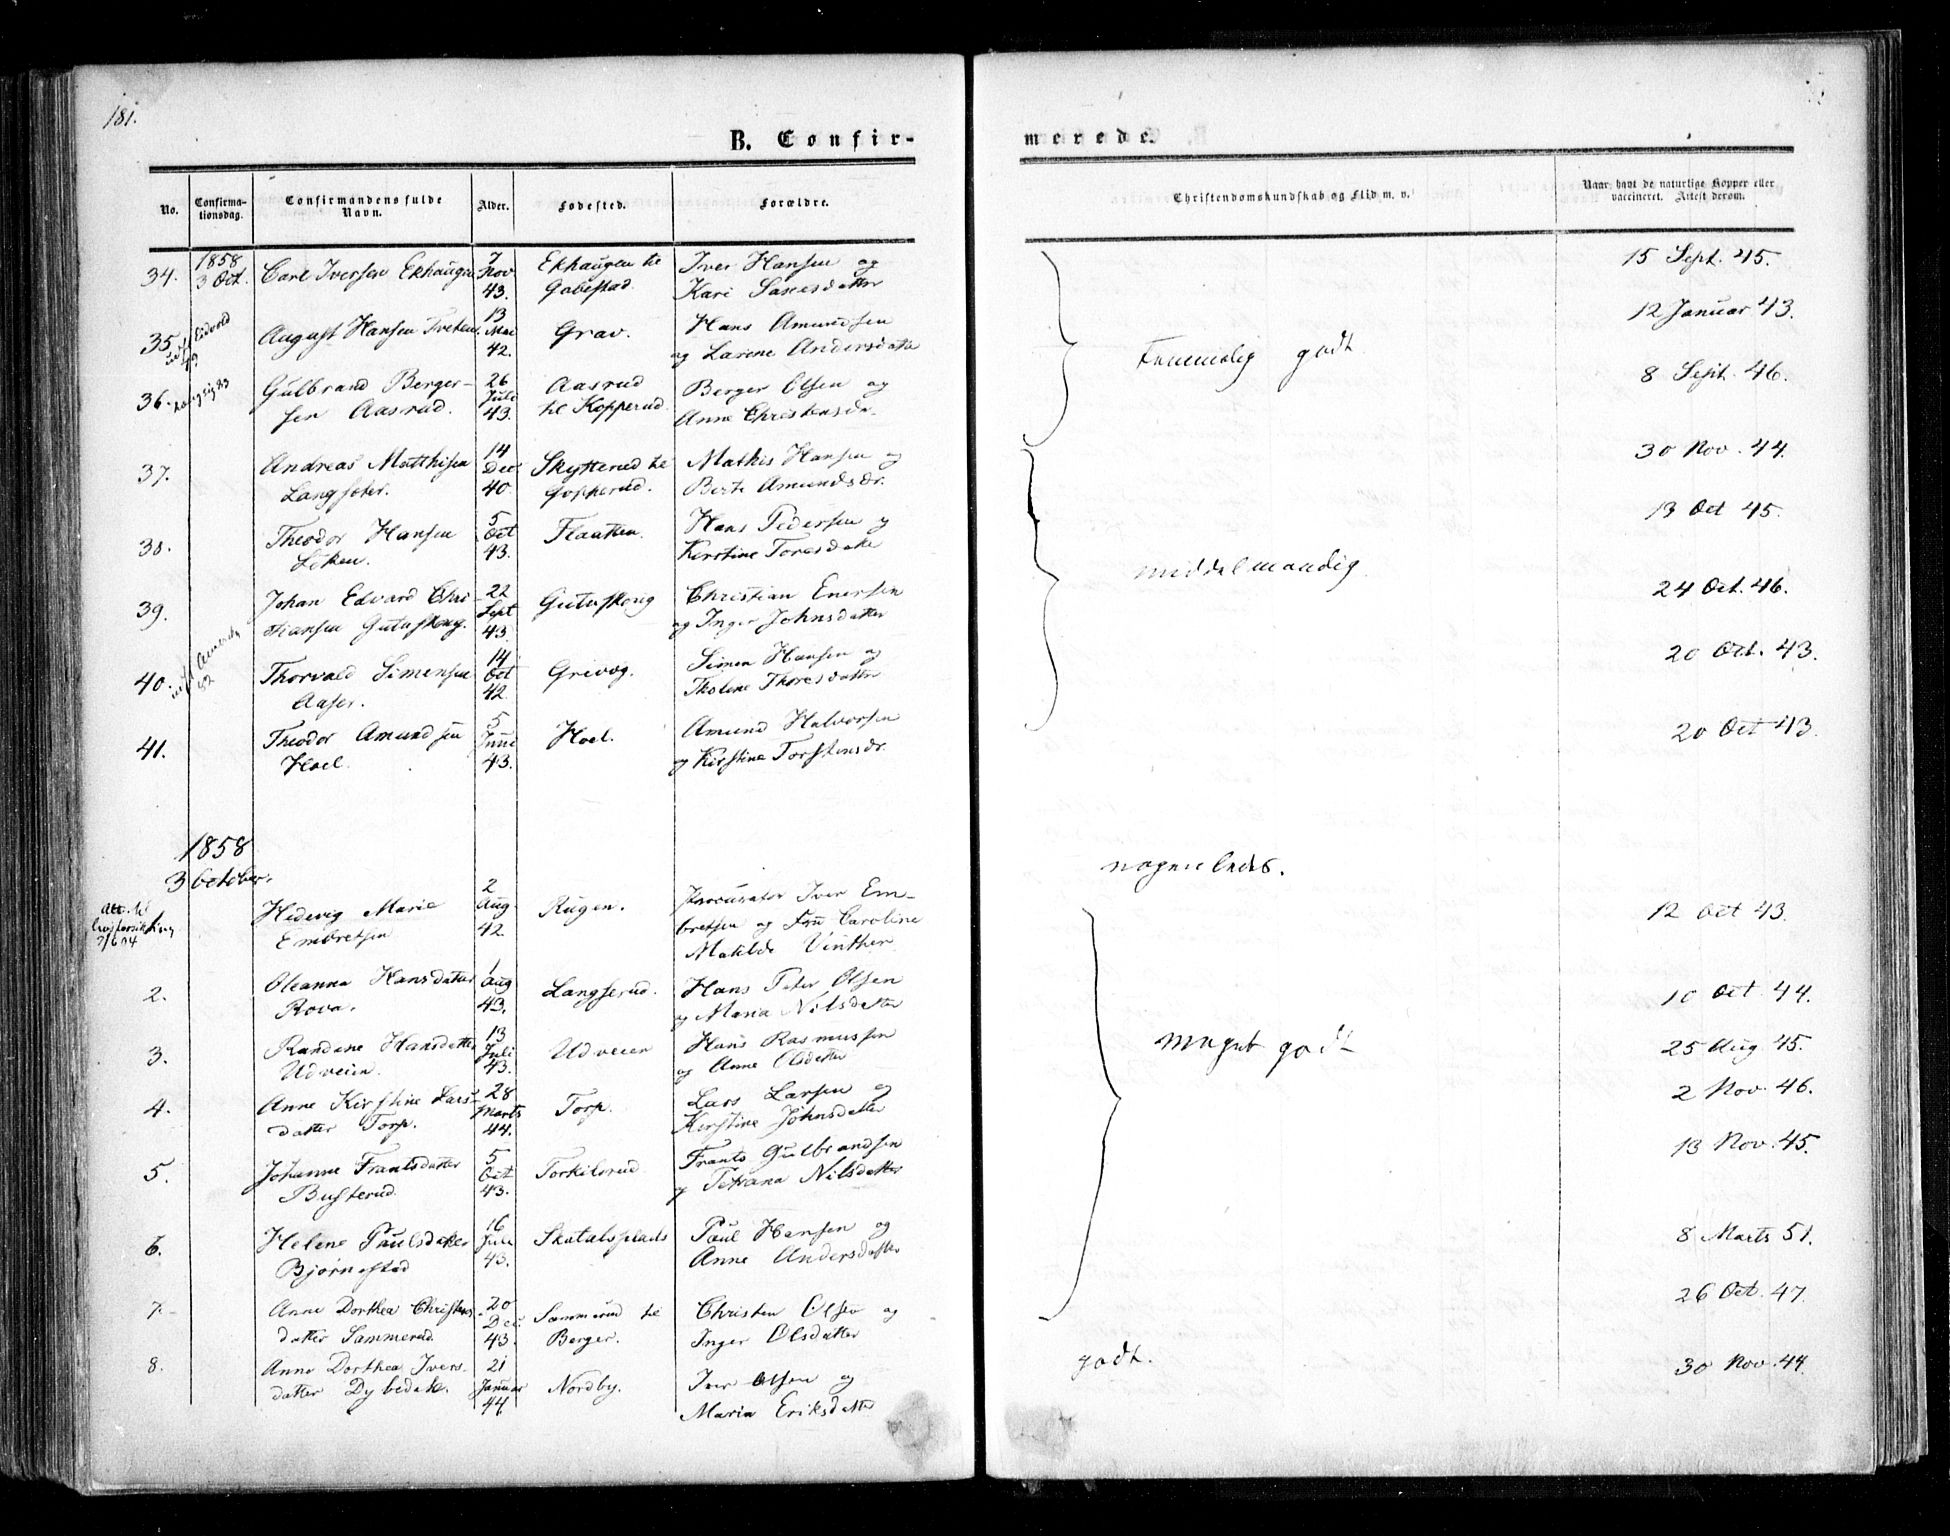 181.
B. Confir-
merede.
No.
Confirma-
tionsdag.
Confirmandens fulde
Navn.
Alder.
Fødested.
Forældre.
Christendomskundskab og Flid m. v.
Naar havt de naturlige Kopper eller
vaccineret. Attest derom.
34. 1858 3 Oct. Carl Iversen Ekhaugen 7 Nov 43. Ekhaugen til Iver Hansen og 15 Sept. 45.
Gabestad. Kari
35. August Hansen Tveten. 13 Mai 42. Grav. Hans Amundsen 12 Januar 43.
og Larine Andersdatter
godt
36. Gulbrand Berger- 26 Juli 43. Aasrud Berger Olsen og 8 Sept. 46.
sen Aasrud. til Kopperud. Anne Christensdr.
37. Andreas Matthisen 14 Dec 40. Skytterud til Mathis Hansen og 30 Nov. 44.
Gopperud. Berte Amundsdr.
38. Theodor Hansen 5 Oct 43. Flaatten. Hans Pedersen og 13 Oct 45.
Løken. Kirstine Toresdatter
middelmaadig.
39. Johan Edvard Chri- 22 Sept 43. Christian Enersen 24 Oct. 46.
stiansen og Inger Johnsdatter
40. Thorvald Simensen 14 Oct 42. Simen Hansen og 20 Oct. 43.
Aaser. Thoresdatter
41. Theodor Amundsen 5 Juni 43. Hoel. Amund Halvorsen 20 Oct 43.
Hoel. og Kirstine Torstensdr.
1858
3 October. nogenledes.
Hedevig Marie 2 Aug. 42. Rugen. Procurator Iver Em- 12 Oct 43.
Embretsen bretsen og Fru Caroline
Matilde Vinther
2. Oleanna Hansdatter 1 Aug 43. Langserud. Hans Peter Olsen 10 Oct 44.
Rova. og Maria Nilsdatter
3. Randine Hansdatter 13 Juli 43. Udveien Hans Rasmussen 25 Aug 45.
Udveien. og Anne Olsdatter
meget godt
4. Anne Kirstine Lars- 28 Marts 44. Torp. Lars Larsen og 2 Nov. 46.
datter Torp. Kirstine Johnsdatter
5. Johanne Frantsdatter 5 Oct 43. Torkilsrud Frants Gulbrandsen 13 Nov. 45.
Busterud. og Nilsdatter
6. Helene Paulsdatter 16 Juli 43. Skatalsplads Paul Hansen og 8 Marts 51.
Bjørnestad Anne Andersdatter
7. Anne Dorthea Christens- 20 Dec. 43. Sammerud til Christen Olsen og 26 Oct. 47.
datter Sammerud. Berger. Inger Olsdatter
8. Anne Dorthea Ivers- 21 Januar 44. Nordby. Iver Olsen og godt. 30 Nov. 44.
datter Maria Eriksdatter